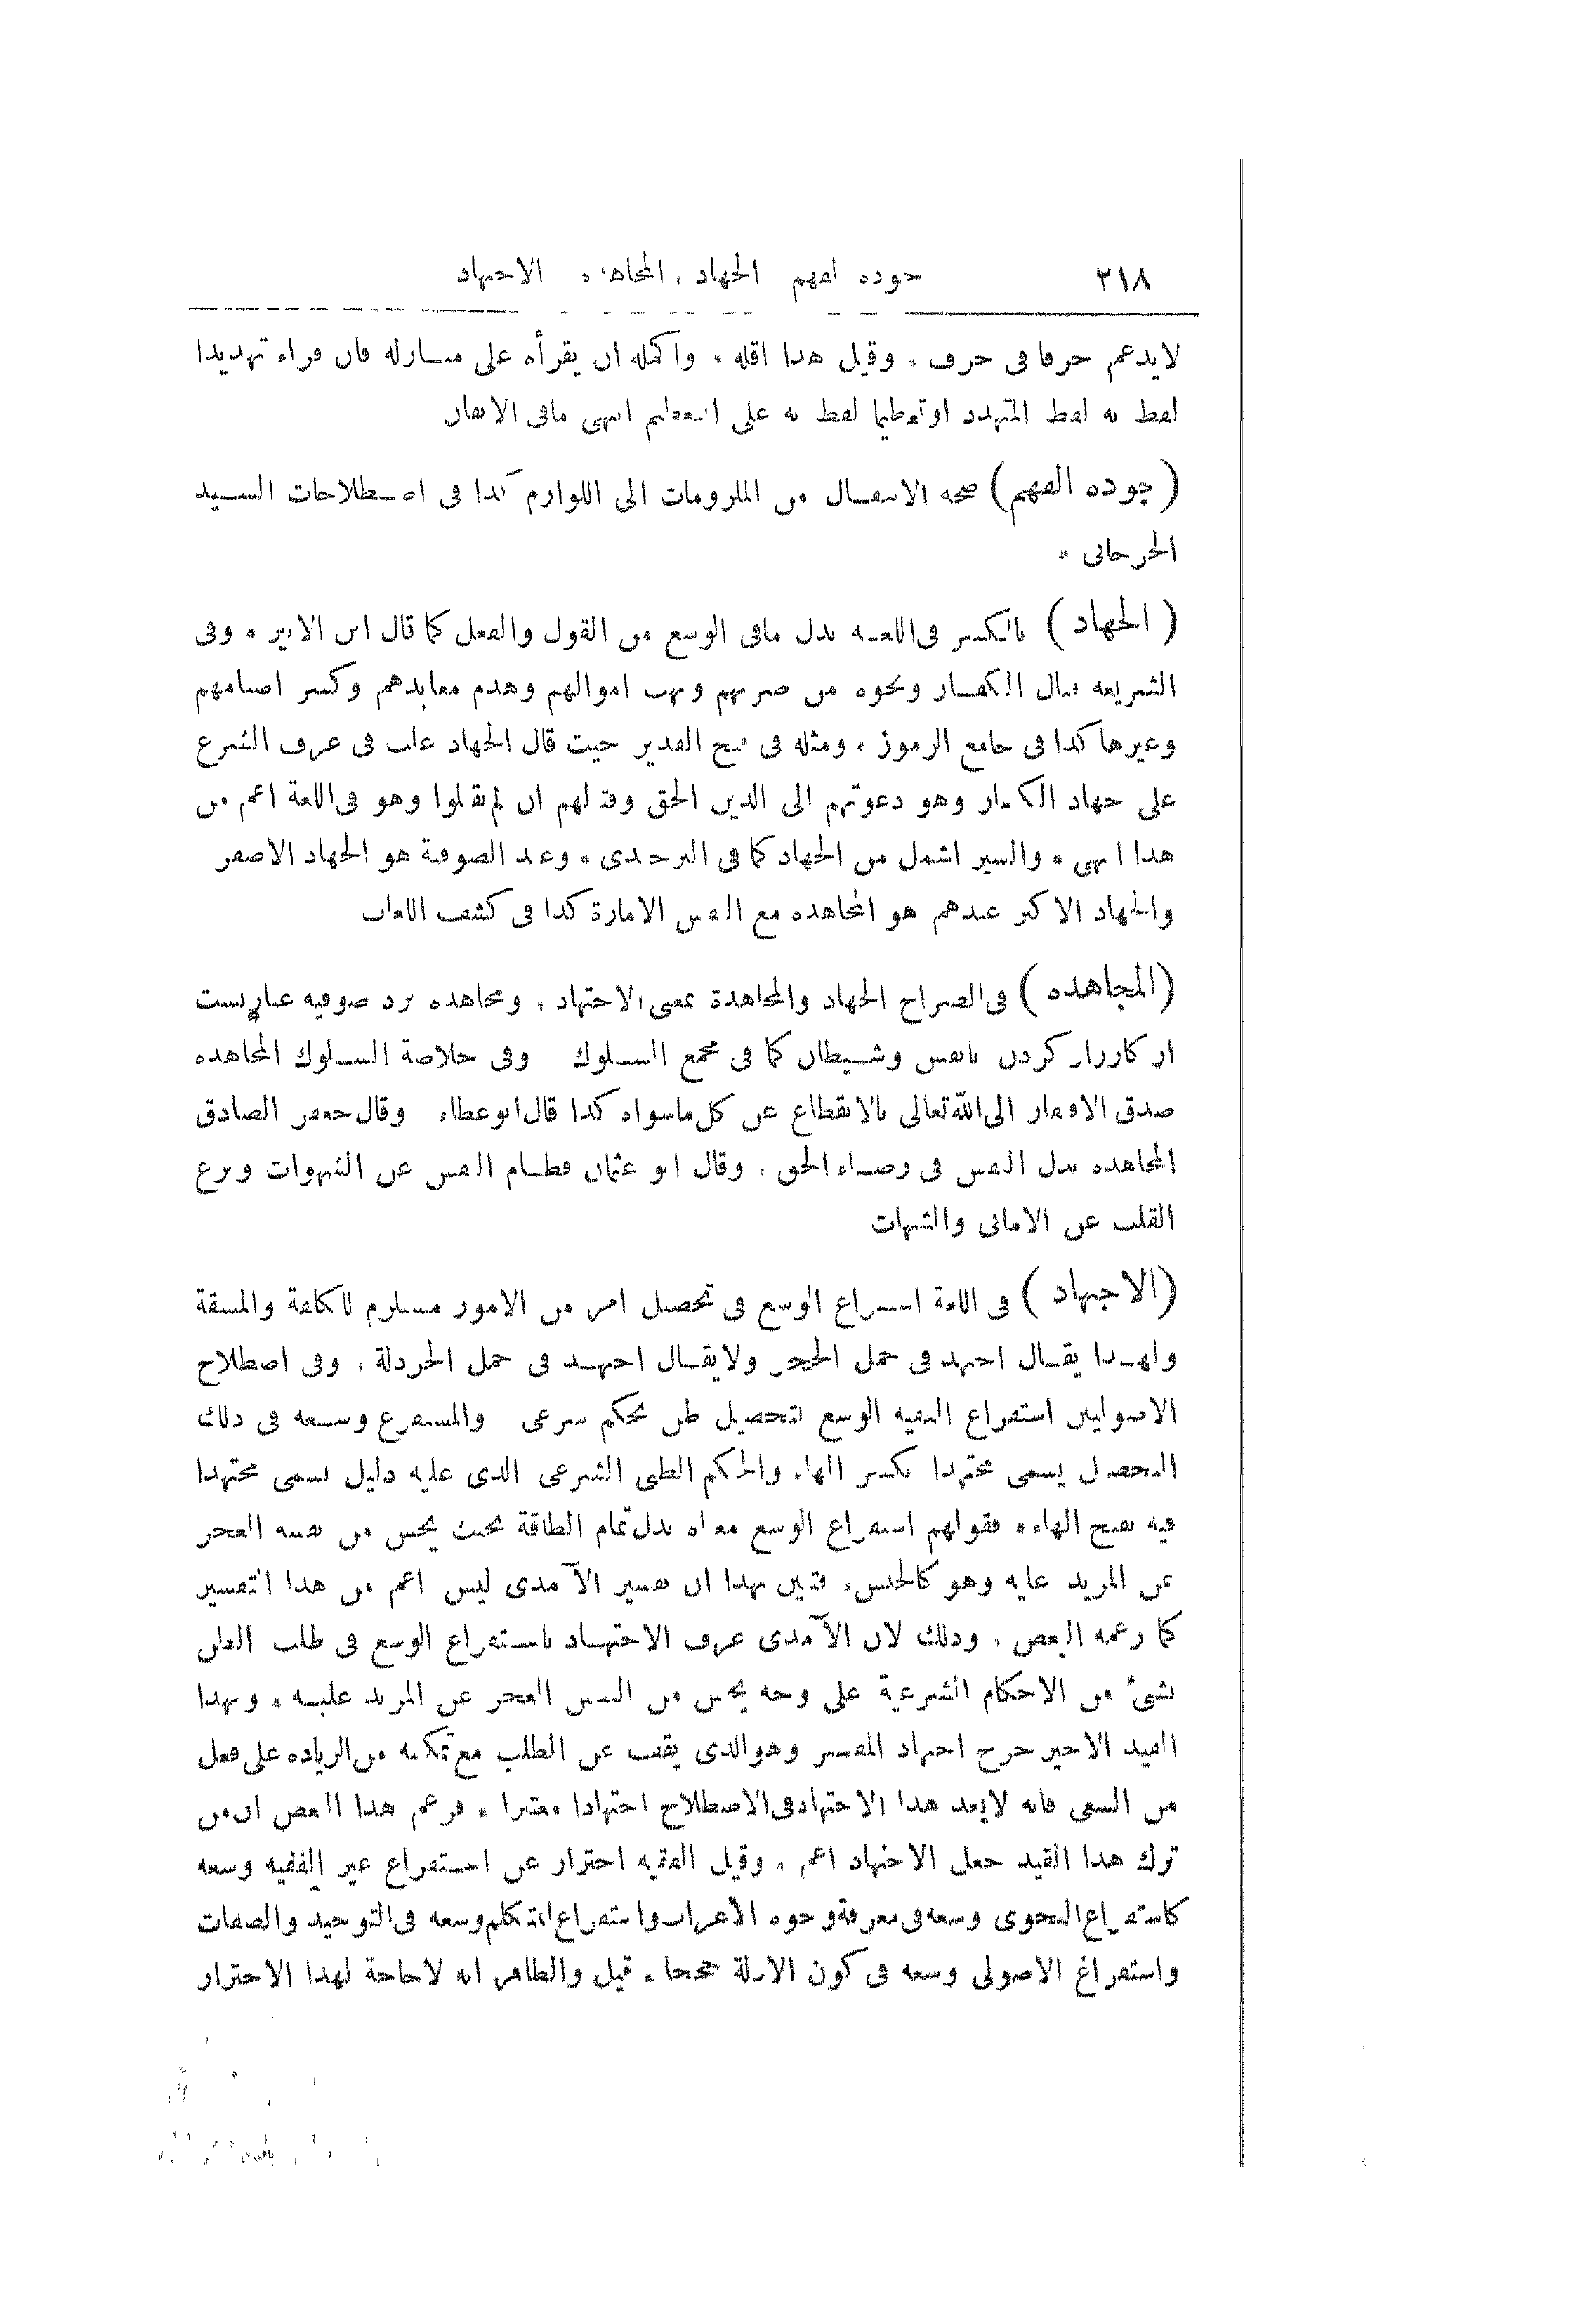 ٢١٨ جودة الفهم الجهاد ، المجاهدة الاجتهاد
لايدغم حرفا فى حرف * وقيل هذا اقله * واكمله ان يقرأه على منــازله فان قراء تهديدا
لفظ به لفظ المتهدد او تعظيما لفظ به على التعظيم انتهى مافى الاتقان
( جودة الفهم ) صحة الانتقــال من الملزومات الى اللوازم كذا فى اصــطلاحات الســيد
الجرجانى *
( الجهاد ) بالكسر فى اللغــة بذل مافى الوسع من القول والفعل كما قال ابن الاثير * وفى
الشريعة قتال الكفــار ونحوه من ضربهم ونهب اموالهم وهدم معابدهم وكسر اصنامهم
وغيرها كذا فى جامع الرموز * ومثله فى فتح القدير حيث قال الجهاد غلب فى عرف الشرع
على جهاد الكفار وهو دعوتهم الى الدين الحق وقتالهم ان لم يقبلوا وهو فى اللغة اعم من
هذا انتهى * والسير اشمل من الجهاد كما فى البرجندى * وعند الصوفية هو الجهاد الاصغر
والجهاد الاكبر عندهم هو المجاهدة مع النفس الامارة كذا فى كشف اللغات
( المجاهدة ) فى الصراح الجهاد والمجاهدة بمعنى الاجتهاد ، ومجاهده نزد صوفيه عبارتست
از كارزار كردن بانفس وشــيطان كما فى مجمع الســلوك وفى خلاصة الســلوك المجاهدة
صدق الافتقار الى الله تعالى بالانقطاع عن كل ماسواه كذا قال ابو عطاء وقال جعفر الصادق
المجاهدة بذل النفس فى رضــاء الحق . وقال ابو عثمان فطــام النفس عن الشهوات ونزع
القلب عن الامانى والشبهات
( الاجتهاد ) فى اللغة استفراغ الوسع فى تحصيل امر من الامور مستلزم للكلفة والمشقة
ولهــذا يقــال اجتهد فى حمل الحجر ولايقــال اجتهــد فى حمل الخردلة ، وفى اصطلاح
الاصوليين استفراغ الفقيه الوسع لتحصيل ظن بحكم شرعى والمستفرغ وســعه فى ذلك
التحصيل يسمى مجتهدا بكسر الهاء والحكم الظنى الشرعى الذى عليه دليل يسمى مجتهدا
فيه بفتح الهاء * فقولهم استفراغ الوسع معناه بذل تمام الطاقة بحيث يحس من نفسه العجز
عن المزيد عليه وهو كالجنس * فتبين بهذا ان تفسير الآمدى ليس اعم من هذا التفسير
كما زعمه البعض ، وذلك لان الآمدى عرف الاجتهــاد باستفراغ الوسع فى طلب الظن
بشئ من الاحكام الشرعية على وجه يحس من النفس العجز عن المزيد عليــه * وبهذا
القيد الاخير خرج اجتهاد المقصر وهو الذى يقف عن الطلب مع تمكنه من الزيادة على فعل
من السعى فانه لايعد هذا الاجتهاد فى الاصطلاح اجتهادا معتبرا * فزعم هذا البعض ان من
ترك هذا القيد جعل الاجتهاد اعم * وقيل الفقيه احتراز عن استفراغ غير الفقيه وسعه
كاستفراغ النحوى وسعه فى معرفة وجوه الاعراب واستفراغ المتكلم وسعه فى التوحيد والصفات
واستفراغ الاصولى وسعه فى كون الادلة حججا * قيل والظاهر انه لاحاجة لهذا الاحتراز